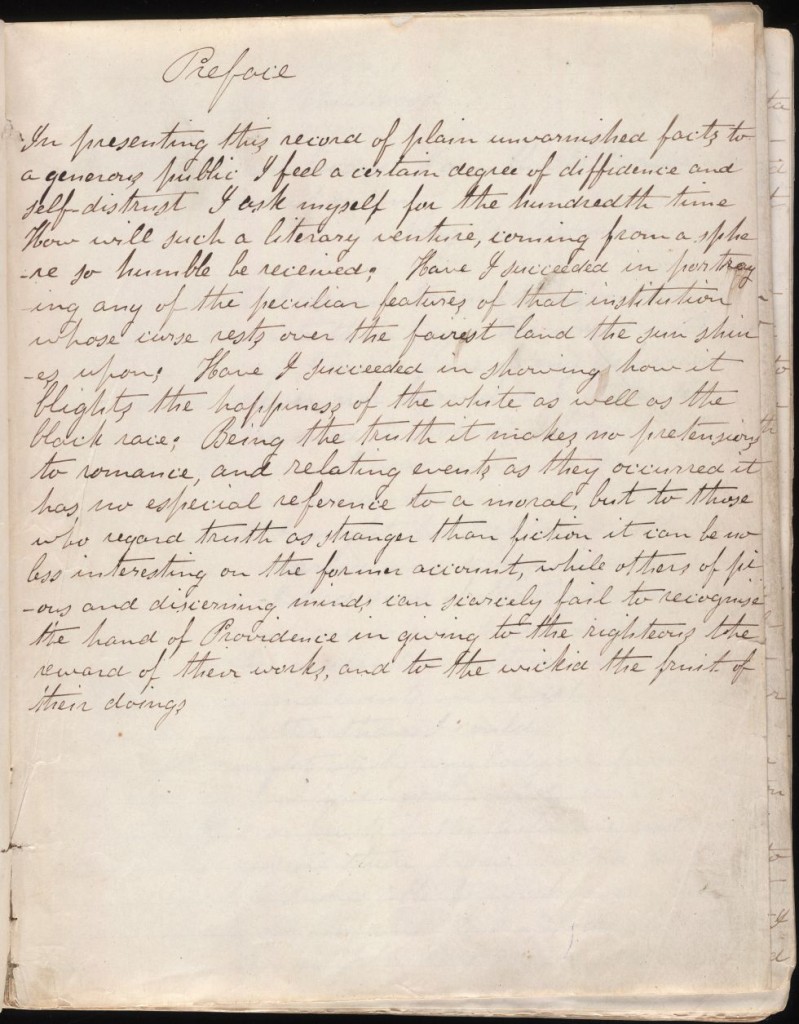 Preface
In presenting this record of plain unvarnished facts to
a generous public I feel a certain degree of diffidence and
self-distrust I ask myself for the hundredth time
How will such a literary venture, coming from a sphe
-re so humble be received; Have I succeeded in portray
-ing any of the peculiar features of that institution
whose curse rests over the fairest land the sun shin
-es upon; Have I succeeded in showing how it
blights the happiness of the white as well as the
black race; Being the truth it makes no pretensions
to romance, and relating events as they occurred it
has no especial reference to a moral, but to those
who regard truth as stranger than fiction it can be no
less interesting on the former account, while others of pi
-ous and discerning minds can scarcely fail to recognise
the hand of Providence in giving to the righteous the
reward of their works, and to the wickid the fruit of
their doings